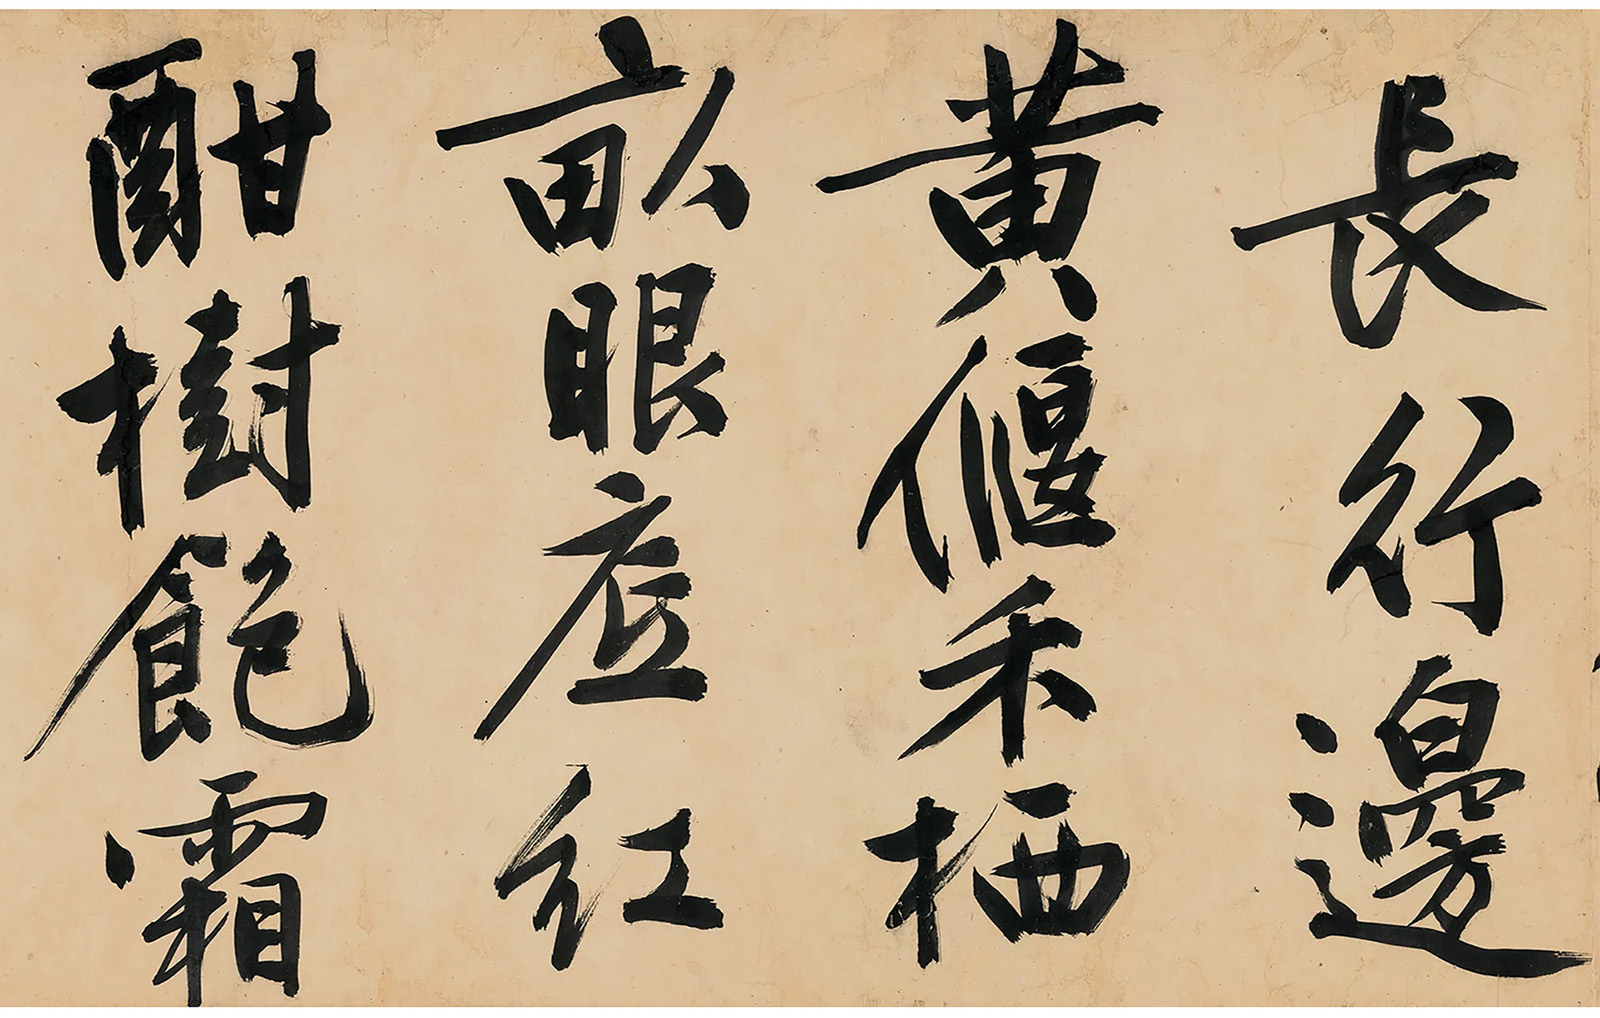 長行邊
黃偃禾栖
畝眼底紅
酣樹飽霜